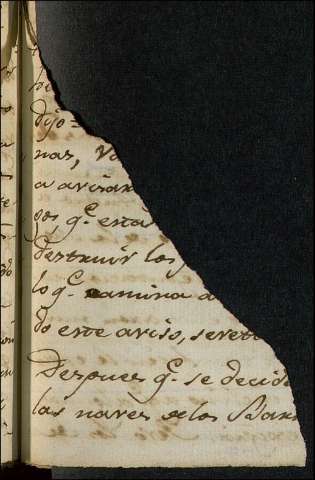 dijo=
nas, Va
a avisar
gos q.e esta
destruir los
lo q.e camina a
do este aviso, se reti
Despues q.e se decid
las naves de los Bar